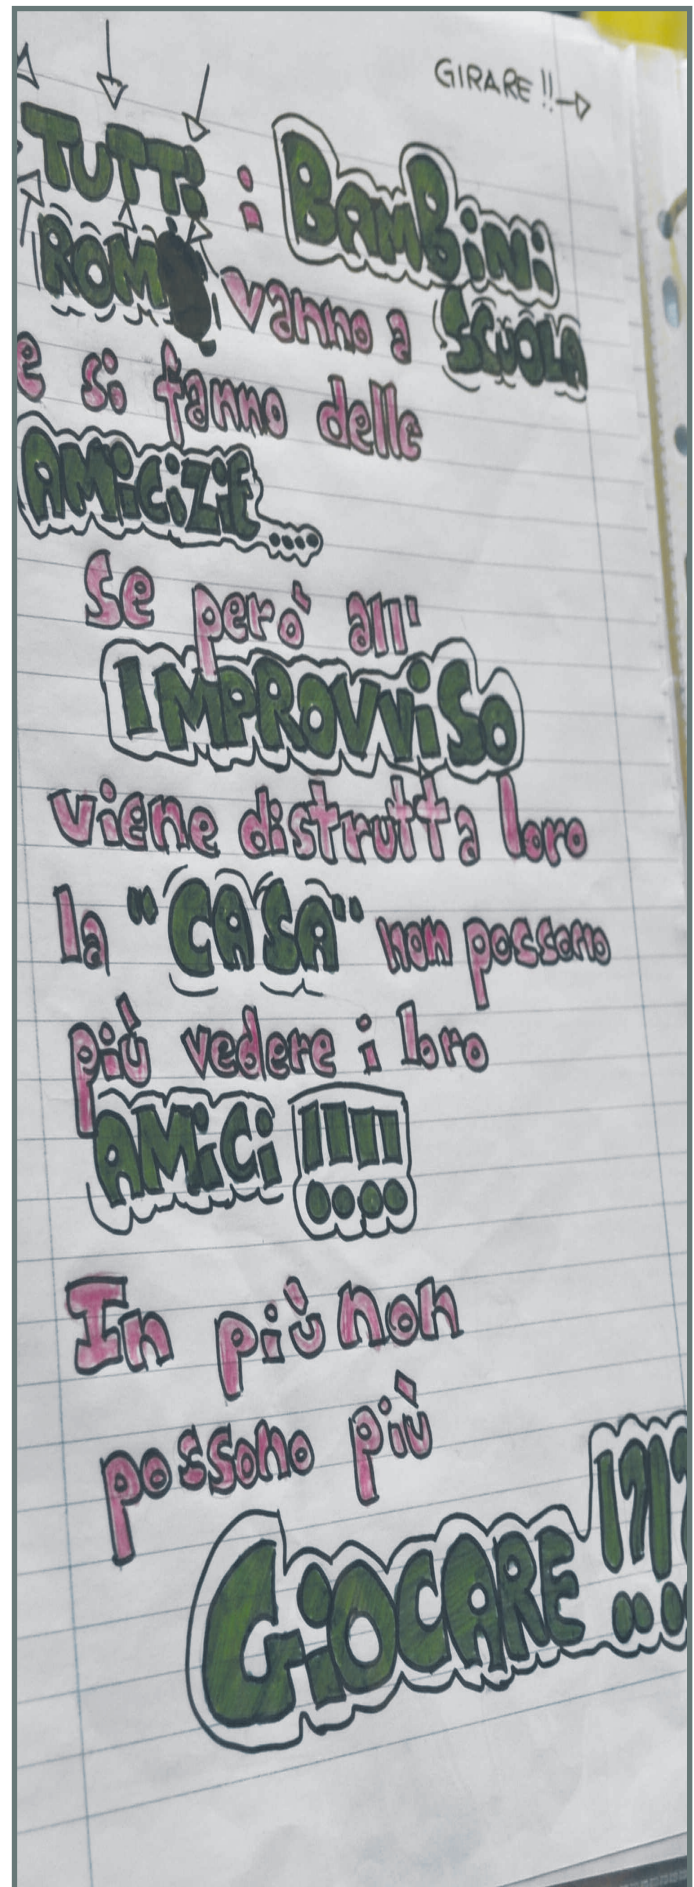 GIRARE !!
TUTTi i BAMBiNi
ROM vanno a SCUOLA
e si fanno delle
AMiCiZiE....
Se però all'
IMPROVViSO
viene distrutta loro
la "CASA" non possono
più vedere i loro
AMiCi !!!!
In più non
possono più
GiOCARE !?!?